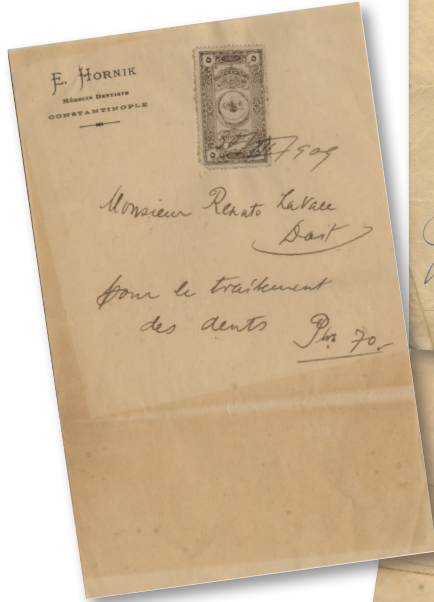 E. HORNIK
MÉDECIN DENTISTE
CONSTANTINOPLE
909
Monsieur Renato LaVall
Doit
pour le traitement
des dents Phs 70.